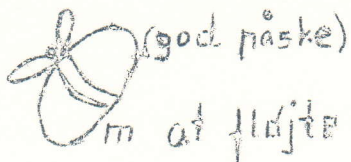 (god påske)
m at fløjte